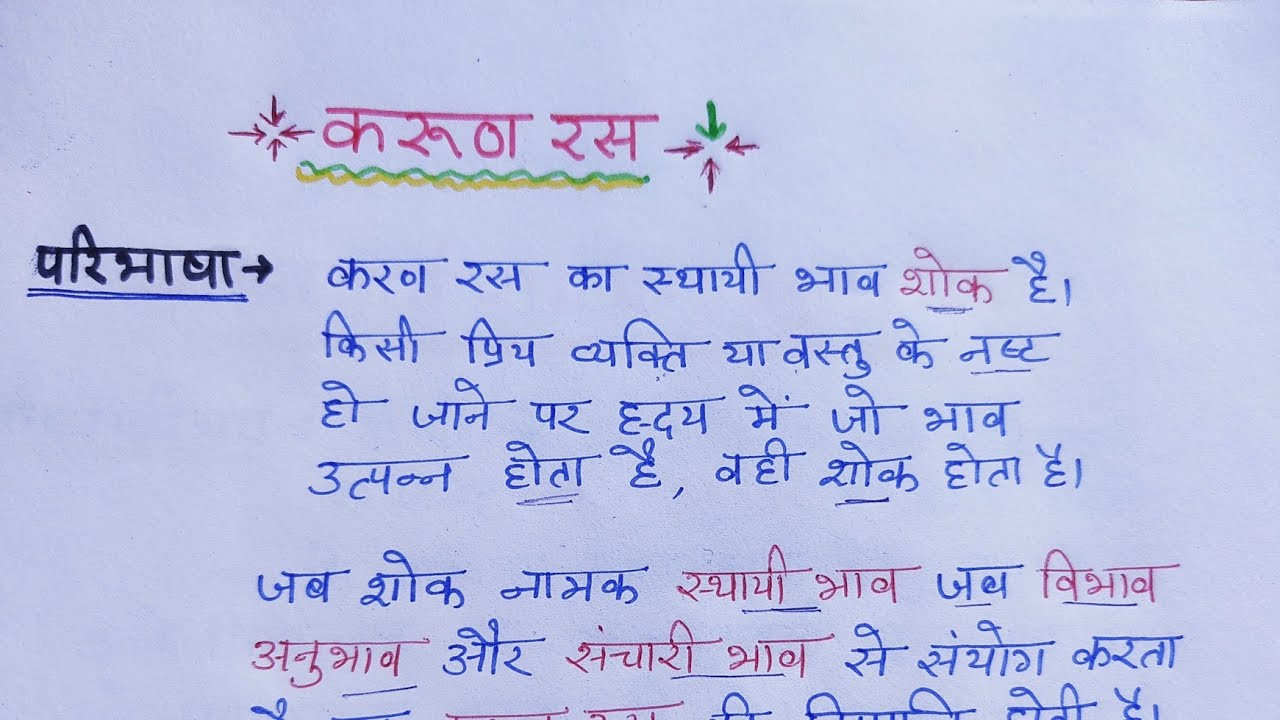 करूण रस
परिभाषा→ करुण रस का स्थायी भाव शोक है।
किसी प्रिय व्यक्ति या वस्तु के नष्ट
हो जाने पर हृदय में जो भाव
उत्पन्न होता है, वही शोक होता है।
जब शोक नामक स्थायी भाव जब विभाव
अनुभाव और संचारी भाव से संयोग करता